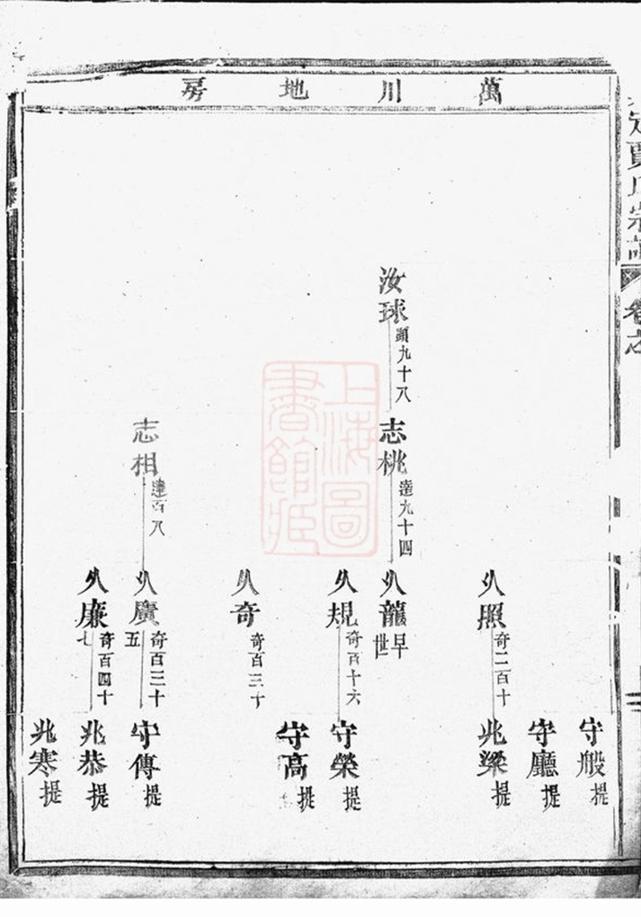 賈氏宗譜
卷之
萬川地房
守般提
守廳提
乆照奇二百十
兆梁提
汝球九十八
志桃達九十四
乆龍早世
乆規奇百十六
守榮提
守高提
乆奇奇百三十
志相達百八
乆廣奇百三十五
守傳提
乆廉奇百四十七
兆恭提
兆寒提
上海圖
書館藏